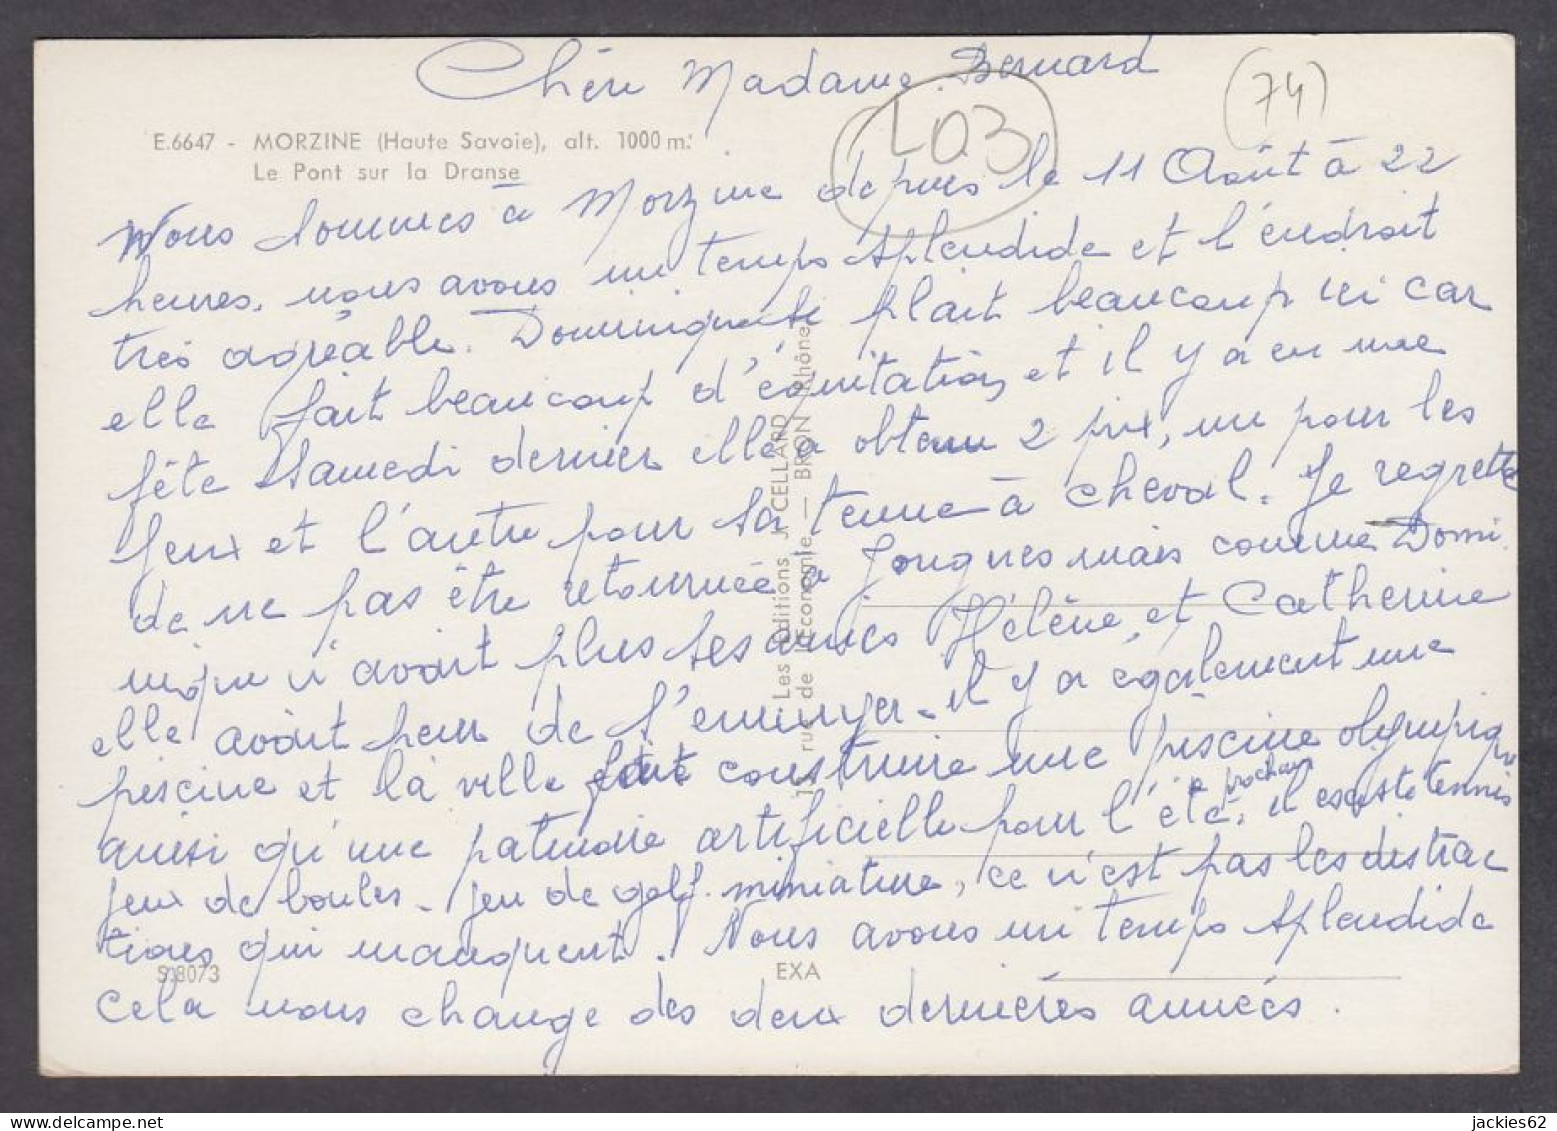 Chère Madame Bernard
(74)
L03
E.6647 - MORZINE (Haute Savoie), alt. 1000 m.
Le Pont sur la Dranse
Nous sommes à Morzine depuis le 11 Août à 22
heures, nous avons un temps splendide et l'endroit
très agréable. Dominique se plait beaucoup ici car
elle fait beaucoup d'équitation, et il y a eu une
fête Samedi dernier elle a obtenu 2 prix, un pour les
jeux et l'autre pour sa tenue à cheval. Je regrette
de ne pas être retournée à Jougnes mais comme Domi
nique n'avait plus ses amies Hélène, et Catherine
elle avait peur de s'ennuyer. il y a également une
piscine et la ville fait construire une piscine olympique
ainsi qu'une patinoire artificielle pour l'été prochain, il existe tennis
jeux de boules - jeu de golf miniature, ce n'est pas les distrac
tions qui manquent. Nous avons un temps splendide
cela nous change des deux dernières années.
Les Editions J. CELLARD
rue de l'Economie — BRON Rhône
S.8073
EXA
jackies62